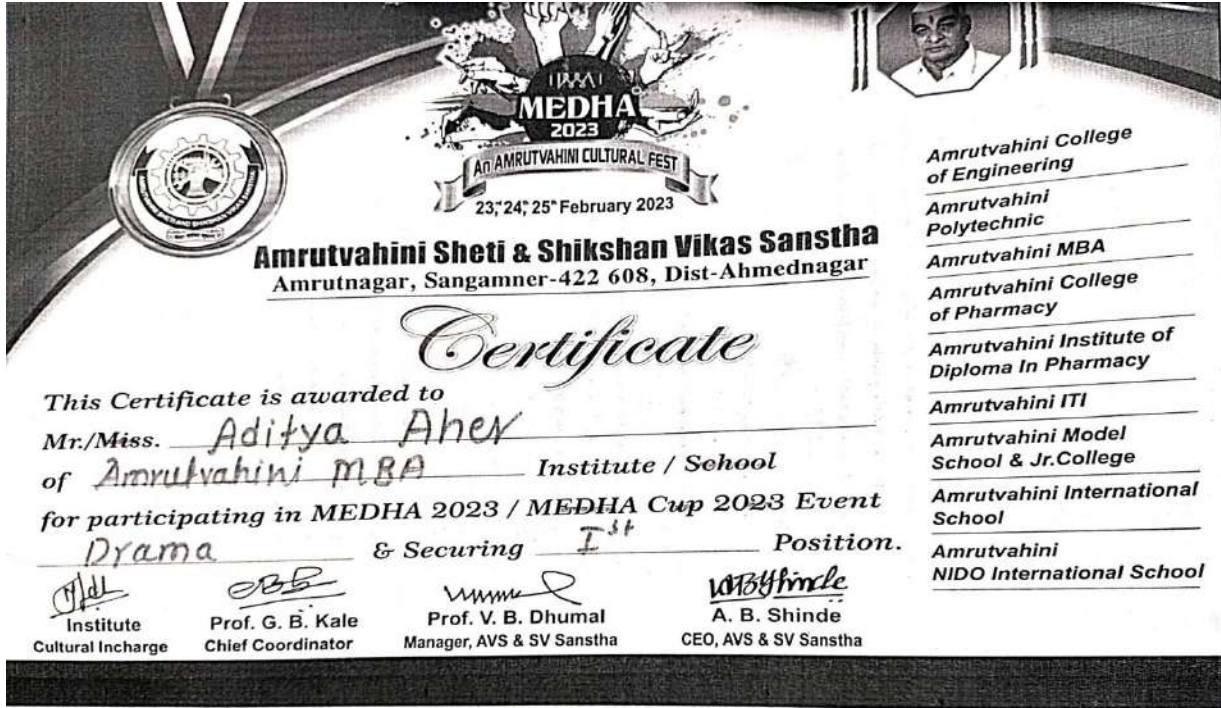 MEDHA
2023
An AMRUTVAHINI CULTURAL FEST
23, 24, 25th February 2023
Amrutvahini Sheti & Shikshan Vikas Sanstha
Amrutnagar, Sangamner-422 608, Dist-Ahmednagar
Certificate
This Certificate is awarded to
Mr./Miss. Aditya Aher
of Amrutvahini MBA Institute / School
for participating in MEDHA 2023 / MEDHA Cup 2023 Event
Drama & Securing Ist Position.
Institute
Cultural Incharge
Prof. G. B. Kale
Chief Coordinator
Prof. V. B. Dhumal
Manager, AVS & SV Sanstha
A. B. Shinde
CEO, AVS & SV Sanstha
Amrutvahini College
of Engineering
Amrutvahini
Polytechnic
Amrutvahini MBA
Amrutvahini College
of Pharmacy
Amrutvahini Institute of
Diploma In Pharmacy
Amrutvahini ITI
Amrutvahini Model
School & Jr.College
Amrutvahini International
School
Amrutvahini
NIDO International School